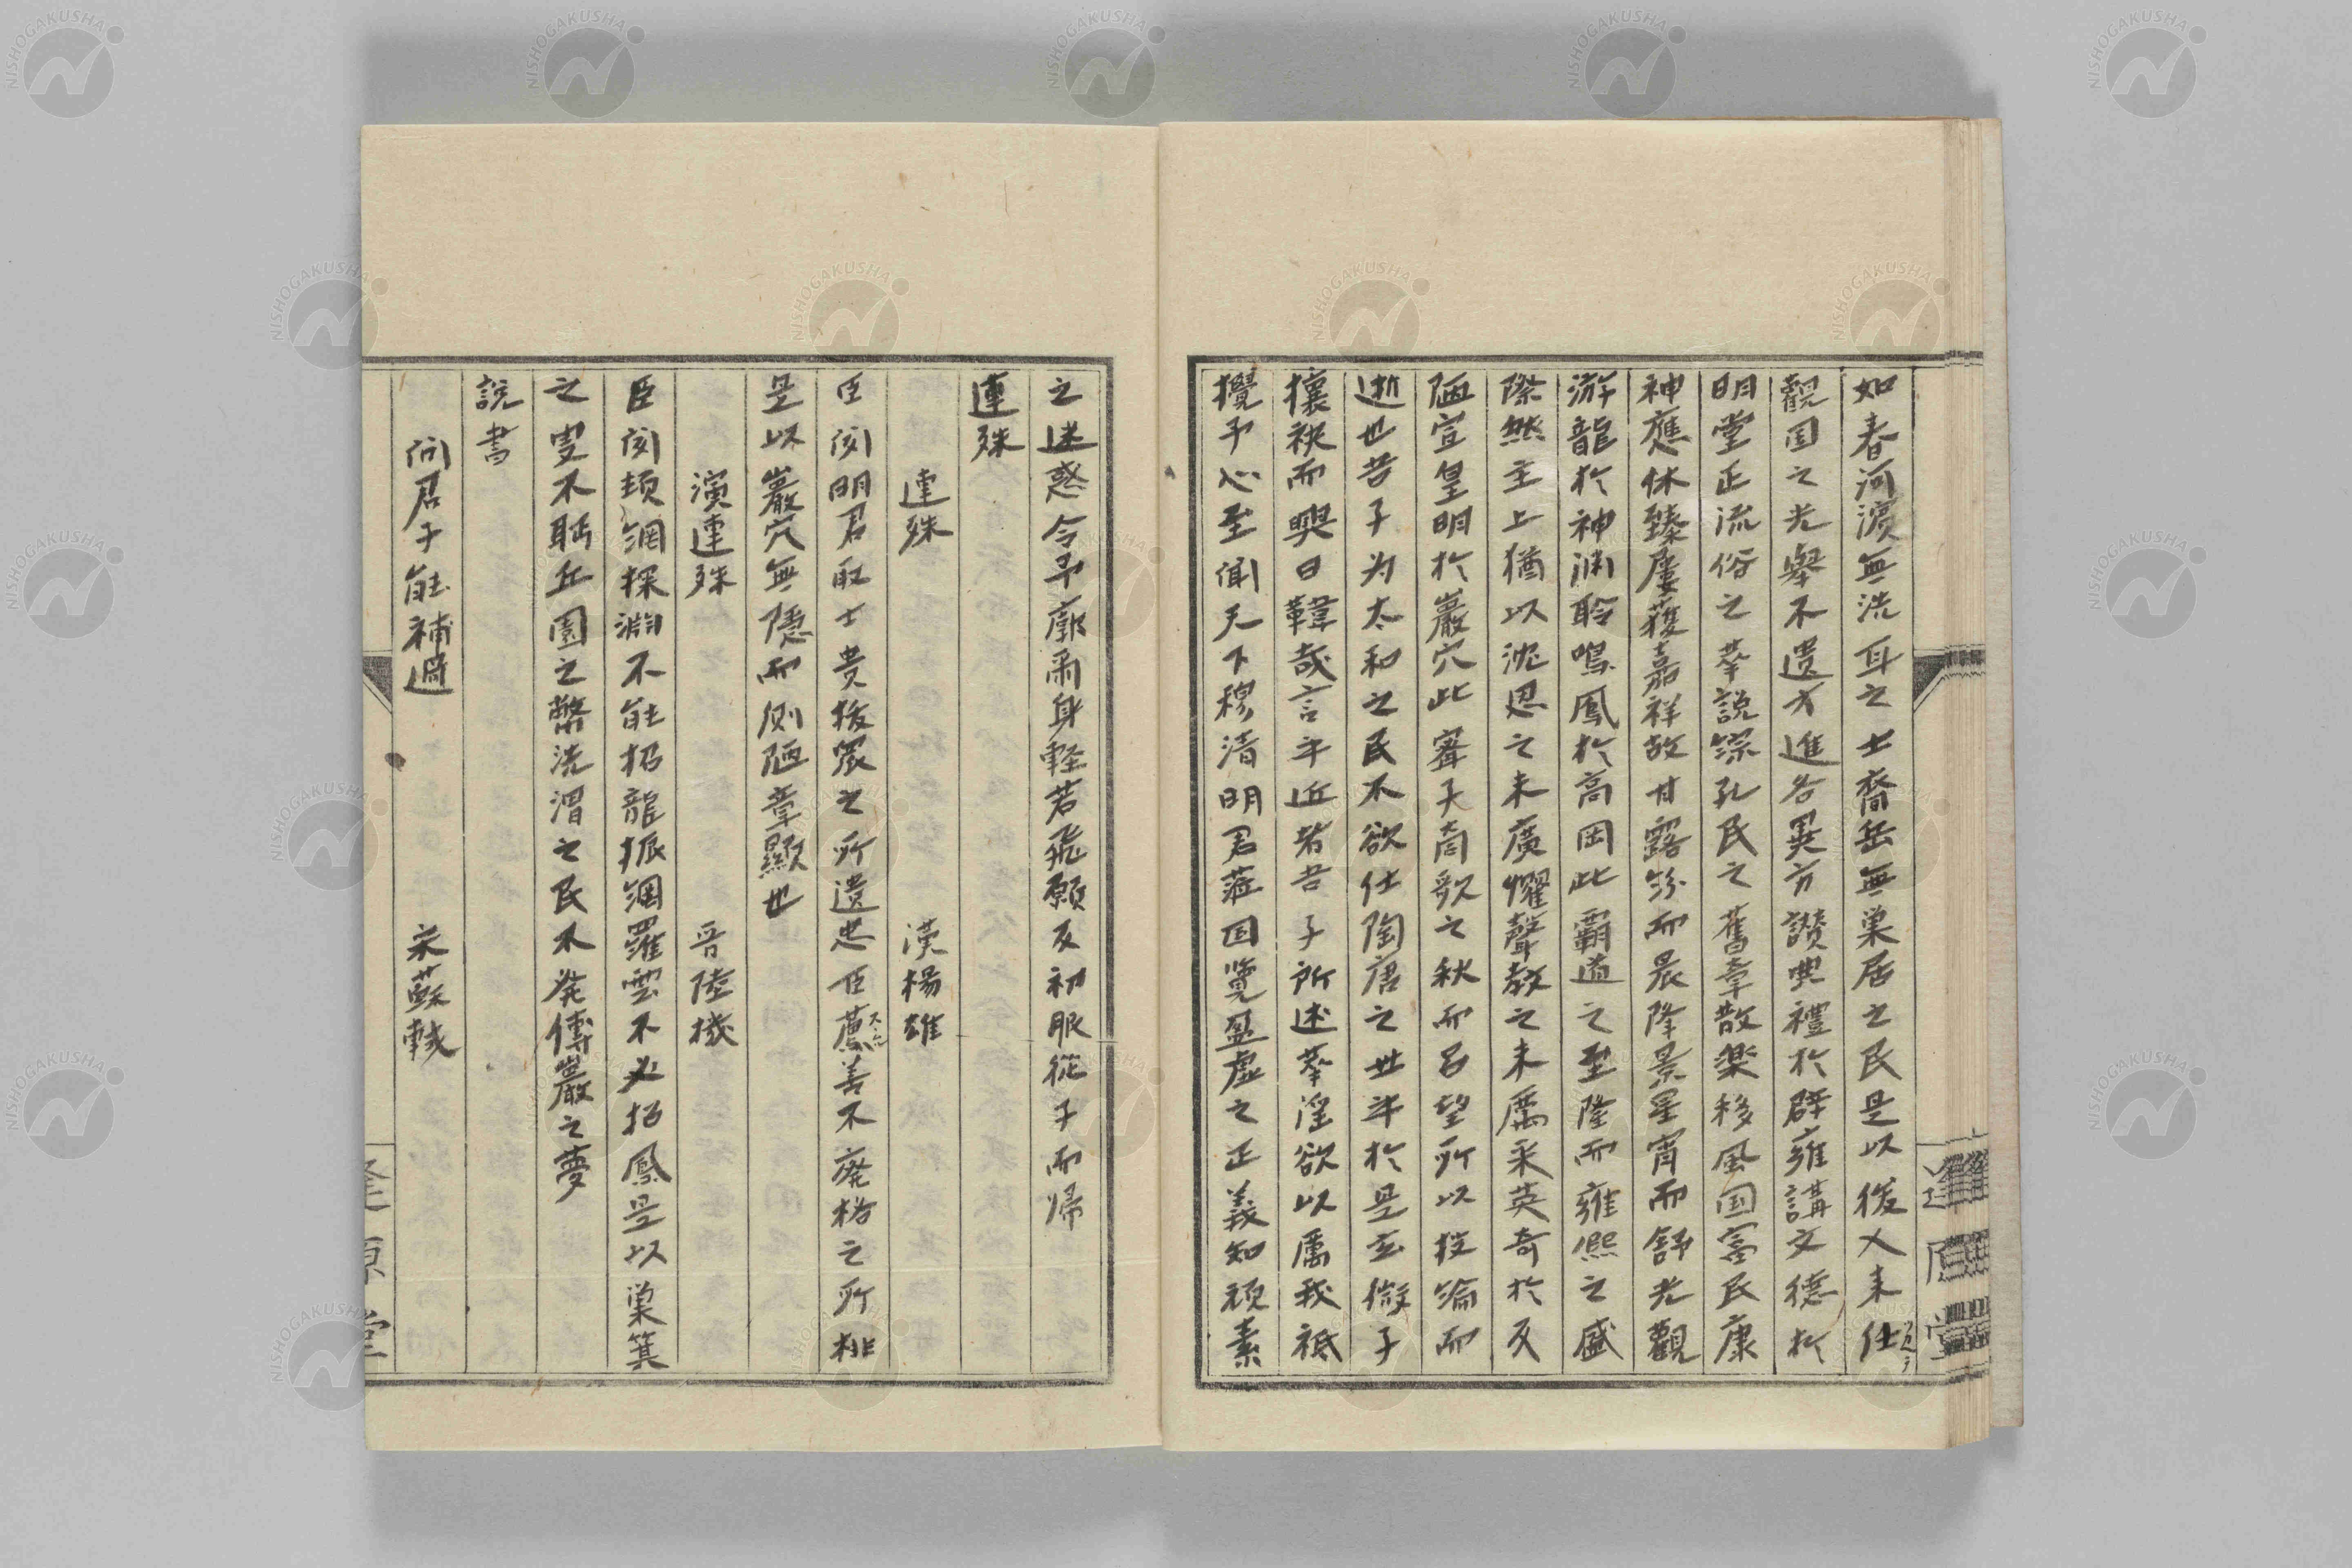 如春河濱無洗耳之士喬岳無巢居之民是以俊乂来仕
觀国之光舉不遺才進各異方讃典禮於辟雍講文德於
明堂正流俗之華説綜孔氏之舊章散楽移風国富民康
神應休臻屢獲嘉祥故甘露紛而晨降景星宵而舒光觀
游龍於神渊聆鳴鳳於高岡此霸道之至隆而雍熙之盛
際然主上猶以沈恩之未廣懼聲教之未厲采英奇於仄
陋宣皇明於巖穴此甯子商歌之秋而呂望所以投綸而
逝也吾子为太和之民不欲仕陶唐之世乎於是玄微子
攘袂而興曰韙哉言乎近者吾子所述華淫欲以厲我祗
攪予心至聞天下穆清明君莅国覽盈虚之正義知頑素
之迷惑令予廓爾身軽若飛願反初服從子而帰
連珠
連珠 漢楊雄
臣聞明君取士貴拔衆之所遺忠臣薦善不廃格之所排
是以巖穴無隱而側陋章顯也
演連珠 晋陸機
臣聞頓網探淵不能招龍振綱羅雲不必招鳳是以巢箕
之叟不眄丘園之幣洗渭之民不発傅巖之夢
説書
問君子能補過 宋蘇軾
逢原堂